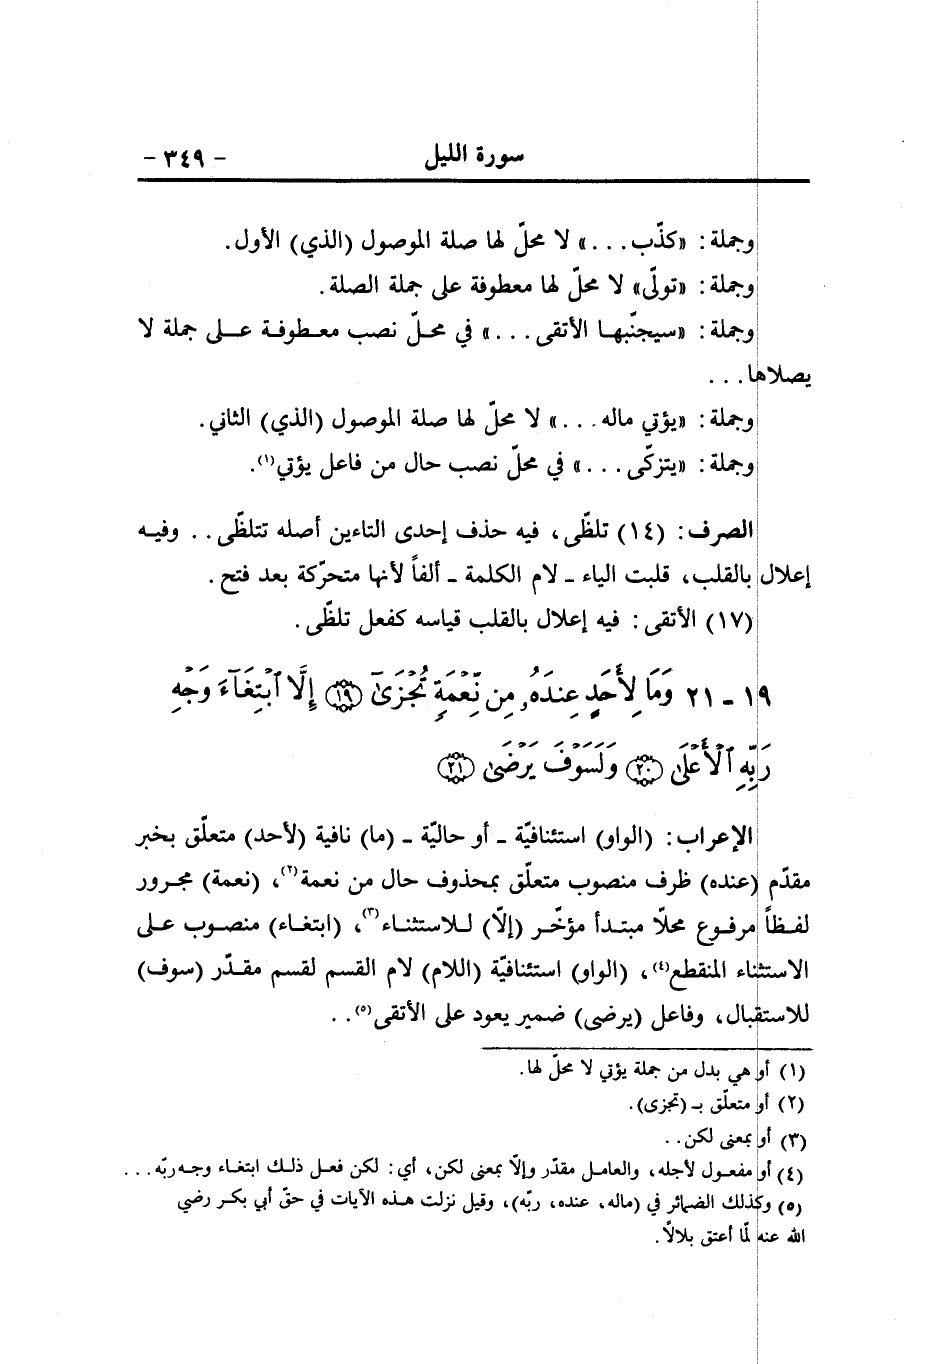 سورة الليل - ٣٤٩ -
وجملة: «كذّب...» لا محلّ لها صلة الموصول (الذي) الأول.
وجملة: «تولّى» لا محلّ لها معطوفة على جملة الصلة.
وجملة: «سيجنّبها الأتقى...» في محلّ نصب معطوفة على جملة لا
يصلاها...
وجملة: «يؤتي ماله...» لا محلّ لها صلة الموصول (الذي) الثاني.
وجملة: «يتزكّى...» في محلّ نصب حال من فاعل يؤتي(١).
الصرف: (١٤) تلظّى، فيه حذف إحدى التاءين أصله تتلظّى.. وفيه
إعلال بالقلب، قلبت الياء ـ لام الكلمة ـ ألفاً لأنها متحرّكة بعد فتح.
(١٧) الأتقى: فيه إعلال بالقلب قياسه كفعل تلظّى.
١٩ - ٢١ وَمَا لِأَحَدٍ عِندَهُۥ مِن نِّعْمَةٍ تُجْزَىٰٓ ﴿١٩﴾ إِلَّا ٱبْتِغَآءَ وَجْهِ
رَبِّهِ ٱلْأَعْلَىٰ ﴿٢٠﴾ وَلَسَوْفَ يَرْضَىٰ ﴿٢١﴾
الإعراب: (الواو) استئنافيّة ـ أو حاليّة ـ (ما) نافية (لأحد) متعلّق بخبر
مقدّم (عنده) ظرف منصوب متعلّق بمحذوف حال من نعمة(٢)، (نعمة) مجرور
لفظاً مرفوع محلّا مبتدأ مؤخّر (إلّا) للاستثناء(٣)، (ابتغاء) منصوب على
الاستثناء المنقطع(٤)، (الواو) استئنافيّة (اللام) لام القسم لقسم مقدّر (سوف)
للاستقبال، وفاعل (يرضى) ضمير يعود على الأتقى(٥)..
(١) أو هي بدل من جملة يؤتي لا محلّ لها.
(٢) أو متعلّق بـ (تجزى).
(٣) أو بمعنى لكن..
(٤) أو مفعول لأجله، والعامل مقدّر وإلّا بمعنى لكن، أي: لكن فعل ذلك ابتغاء وجه ربّه...
(٥) وكذلك الضمائر في (ماله، عنده، ربّه)، وقيل نزلت هذه الآيات في حقّ أبي بكر رضي
الله عنه لمّا أعتق بلالاً.